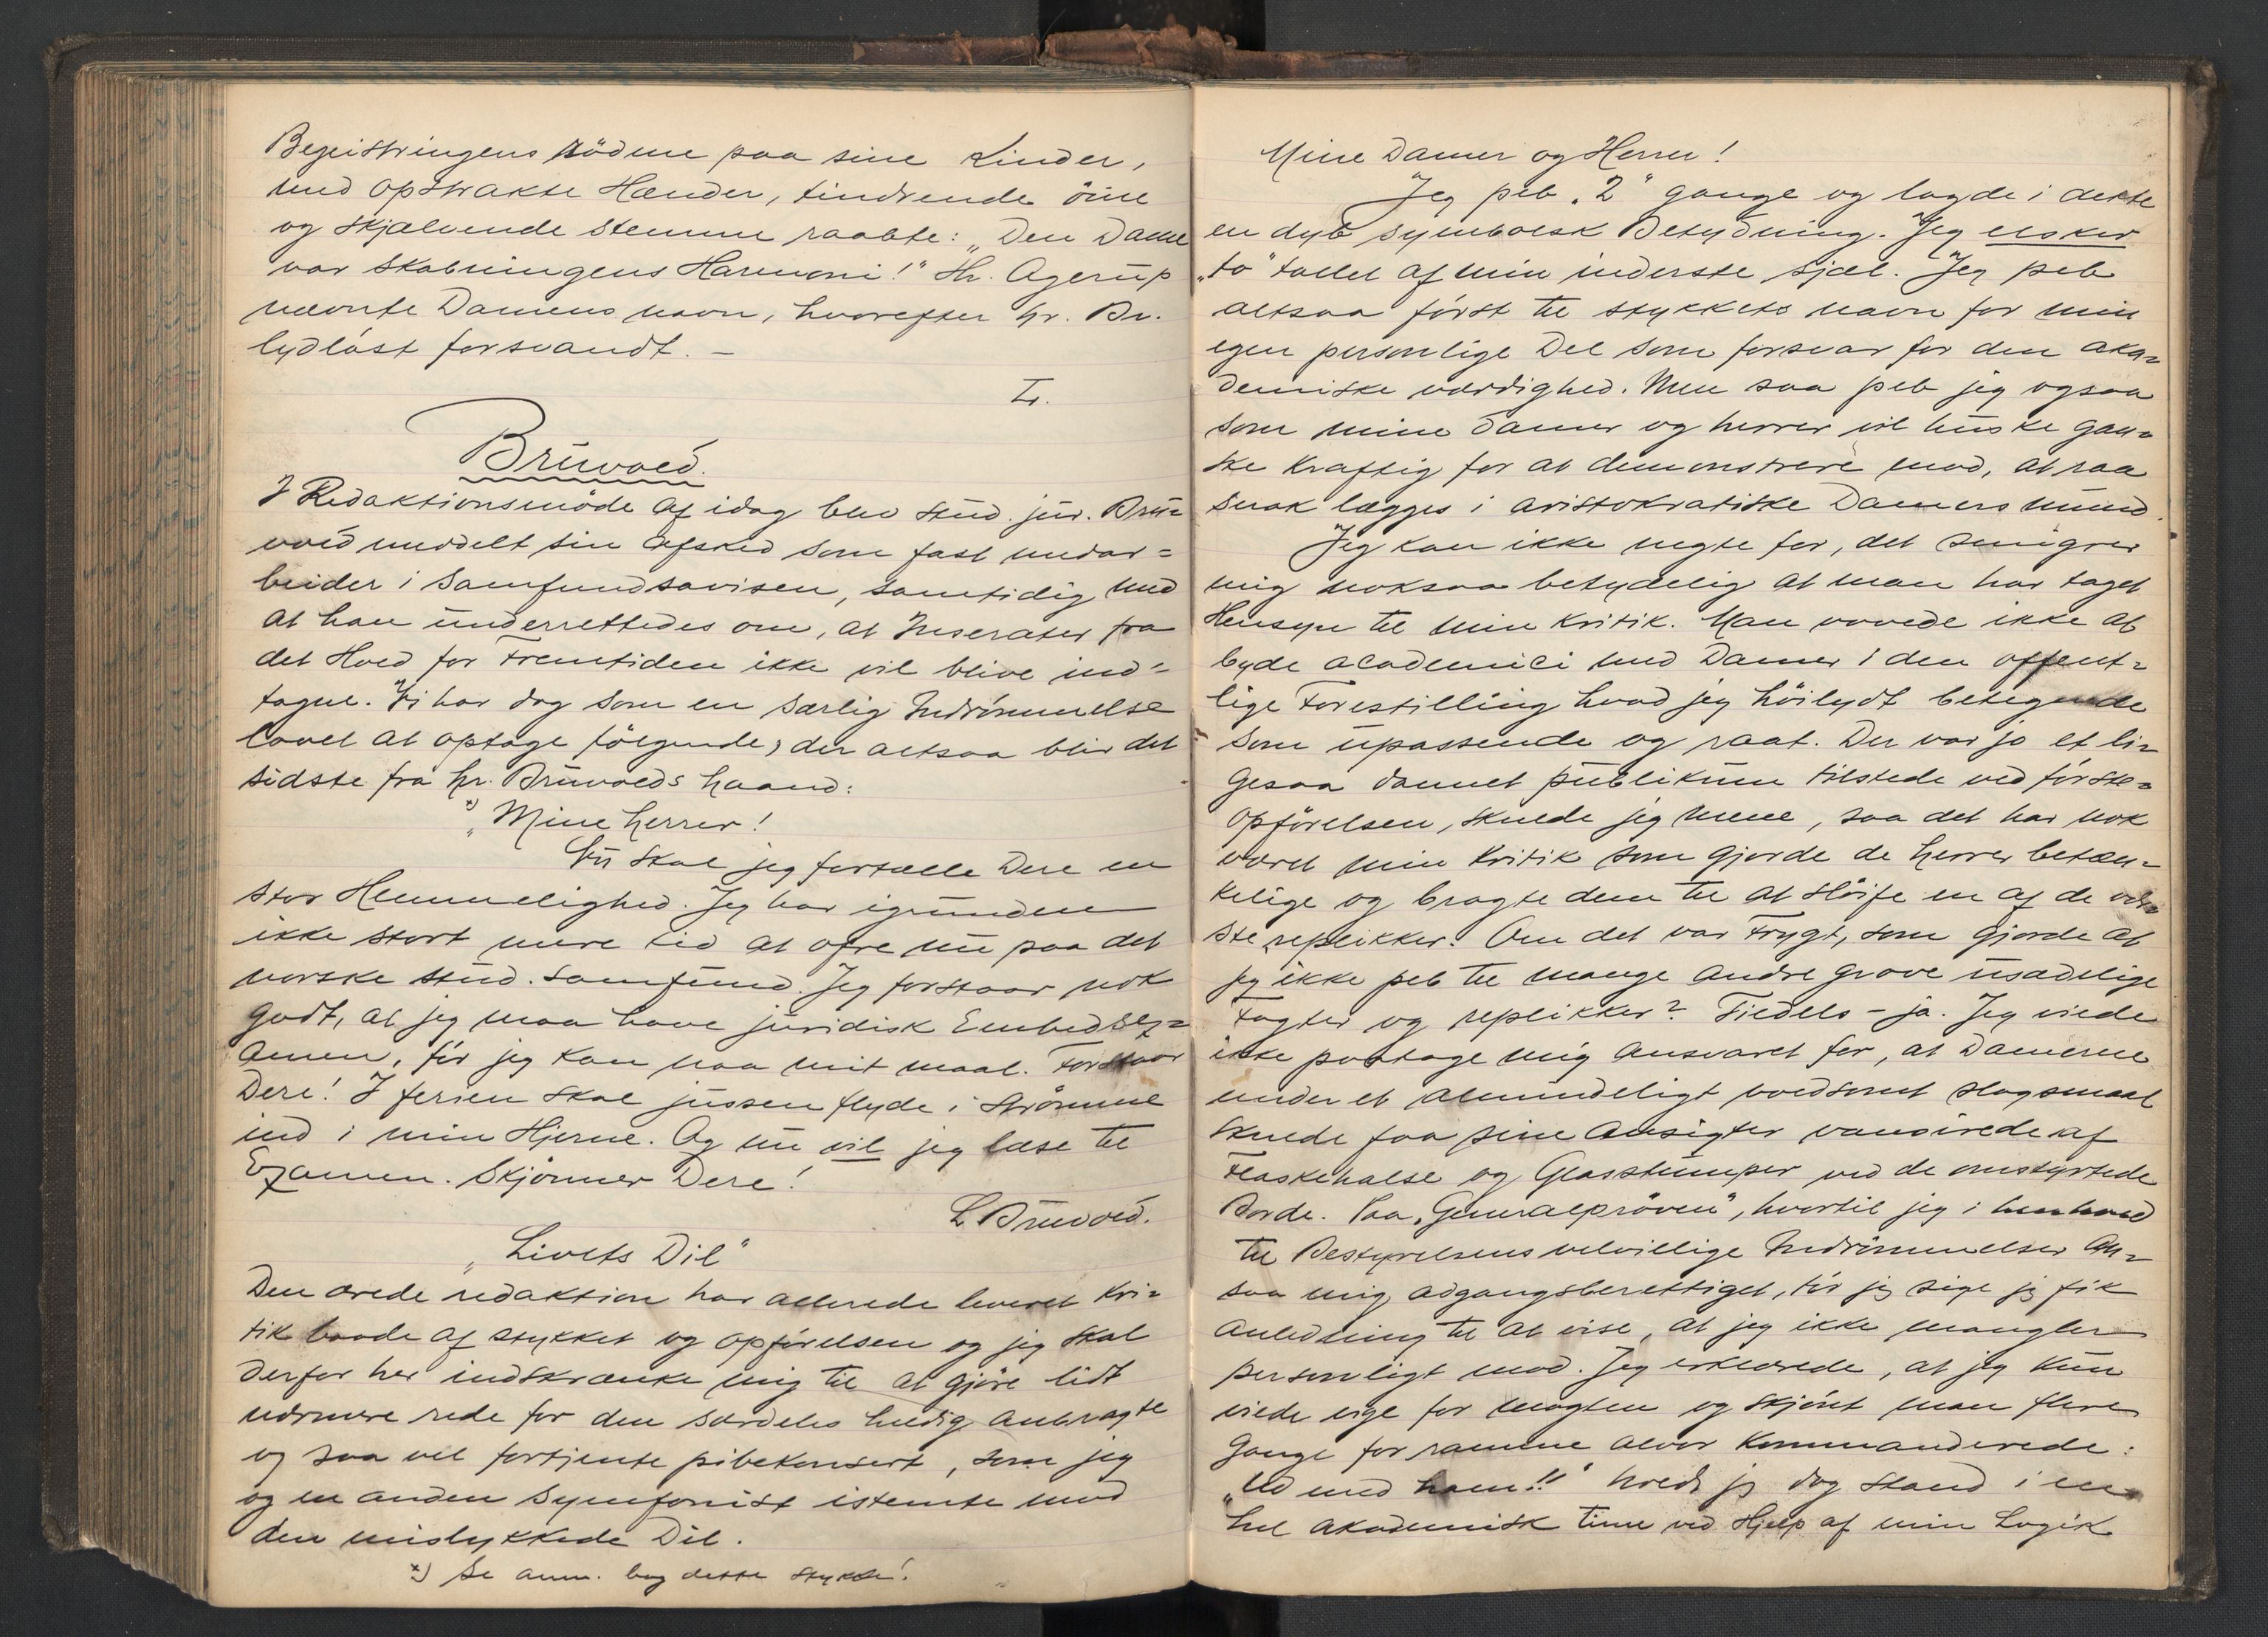 Begeistringens Rødme paa sine Kinder,
med opstrakte Hænder, tindrende öine
og skjælvende Stemme raabte: „Den Dame
var Skabningens Harmoni!" Hr. Agerup
nævnte Damens navn, hvorefter hr. Br.
lydløst forsvandt. –
Bruvold.
I Redaktionsmöde af idag blev stud. jur. Bru=
vold meddelt sin Afsked som fast medar=
beider i Samfundsavisen, samtidig med
at han underrettedes om, at Inserater fra
det Hold for Fremtiden ikke vil blive ind=
tagne. Vi har dog som en særlig Indrømmelse
lovet at optage følgende, der altsaa blir det
sidste fra hr. Bruvolds haand:
x) „Mine herrer!
Nu skal jeg fortælle Dere en
stor Hemmelighed. Jeg har igrunden
ikke stort mere tid at ofre nu paa det
norske stud. samfund. Jeg forstaar nok
godt, at jeg maa have juridisk Embedsex=
amen, før jeg kan naa mit maal. Forstaar
Dere! I ferien skal jussen flyde i Strømme
ind i min Hjerne. Og nu vil jeg læse til
Examen. Skjønner Dere!
L. Bruvold.
„Livets Dil"
Den ærede redaktion har allerede leveret kri=
tik baade af stykket og opførelsen og jeg skal
derfor her indskrænke mig til at gjøre lidt
nærmere rede for den særdeles heldig anbragte
og saa vel fortjente pibekonsert, som jeg
og en anden Symfonist istemte mod
den mislykkede Dil.
x) Se anm. bag dette stykke!
Mine Damer og Herrer!
Jeg peb „2" gange og lagde i dette
en dyb symbolsk Betydning. Jeg elsker
„to"tallet af min inderste sjæl. Jeg peb
altsaa først til stykkets navn for min
egen personlige Del som forsvar for den aka=
demiske værdighed. Men saa peb jeg ogsaa
som mine damer og herrer vil huske gan=
ske kraftig for at demonstrere mod, at raa
snak lægges i aristokratiske Damers mund.
Jeg kan ikke negte for, det smigrer
mig noksaa betydelig at man har taget
Hensyn til min Kritik. Man vovede ikke at
byde academici med Damer i den offent=
lige Forestilling hvad jeg høilydt betegnede
som upassende og raat. Der var jo et li=
gesaa dannet publikum tilstede ved første=
opførelsen, skulde jeg mene, saa det har nok
været min Kritik som gjorde de herrer betæn=
kelige og bragte dem til at sløife en af de vær=
ste replikker. Om det var Frygt, som gjorde at
jeg ikke peb til mange andre grove usædelige
Fagter og replikker? Tildels – ja. Jeg vilde
ikke paatage mig Ansvaret for, at Damerne
under et almindeligt voldsomt slagsmaal
skulde faa sine Ansigter vansirede af
Flaskehalse og Glasstumper ved de omstyrtede
Borde. Paa „Generalprøven", hvortil jeg i henhold
til Bestyrelsens velvillige Indrømmelser An=
saa mig adgangsberettiget, tør jeg sige jeg fik
anledning til at vise, at jeg ikke mangler
personligt mod. Jeg erklærede, at jeg kun
vilde vige for magten og skjønt man flere
Gange for ramme alvor kommanderede:
„Ud med ham!!" holdt jeg dog stand i en
hel akademisk time ved Hjelp af min Logik